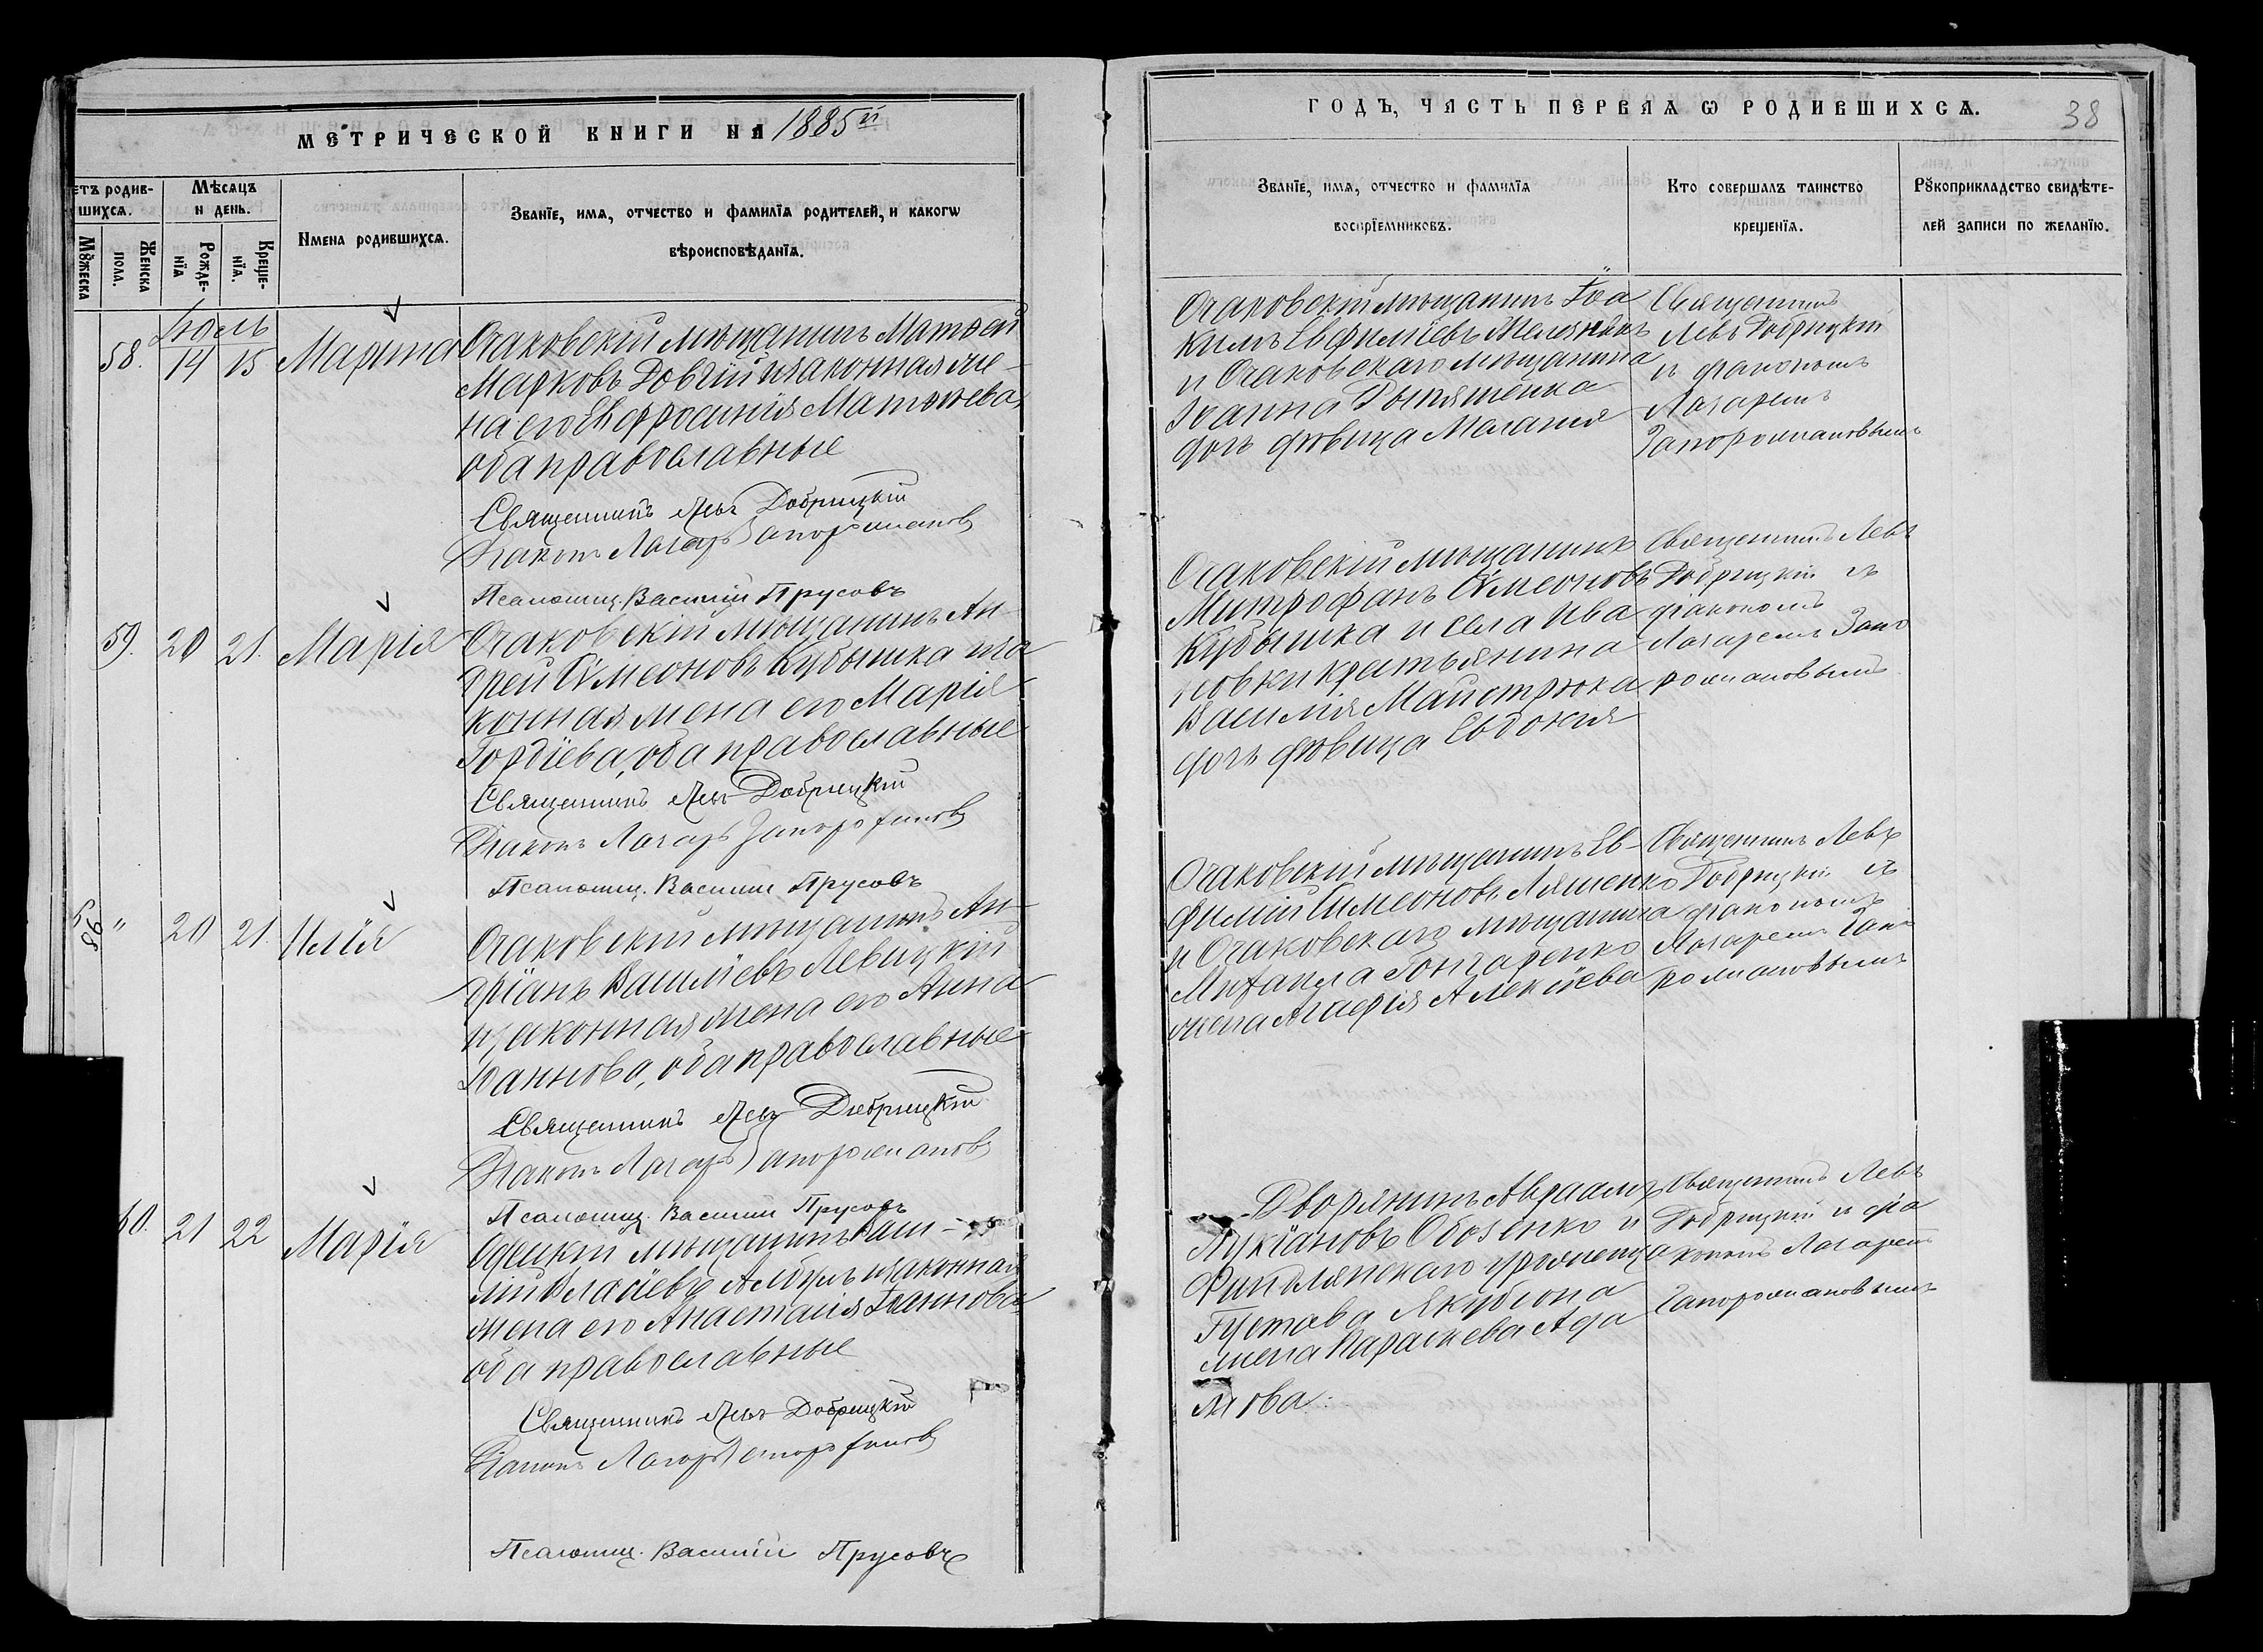 МЕТРИЧЕСКОЙ КНИГИ НА 1885й
етъ родив-
шихсѧ.
Мѣсѧцъ
и день.
Имена родившихсѧ.
Званїе, имѧ, отчество и фамилїѧ родителей, и какогѡ
вѣроисповѣданїѧ.
Мꙋжеска
Женска
пола.
Рожде-
нїѧ
Креще-
нїѧ.
Іюль
58. 14 15 Марѳа
Очаковскій мѣщанинъ Матѳей
Марковъ Довгій и законная же-
на его Евфросинія Матѳѣева,
оба православные
Священникъ Левъ Добрицкій
Діаконъ Лазарь Запорожановъ
Псаломщ. Василій Прусовъ
59. 20 21. Марія
Очаковскій мѣщанинъ Ан-
дрей Симеоновъ Кубышка и за
конная жена его Марія
Гордіева, оба православные
Священникъ Левъ Добрицкій
Діаконъ Лазарь Запорожановъ
Псаломщ. Василій Прусовъ
598 " 20 21. Илія
Очаковскій мѣщанинъ Ан-
дріанъ Василіевъ Левицкій
и законная жена его Анна
Іоаннова, оба православные
Священникъ Левъ Добрицкій
Діаконъ Лазарь Запорожановъ
Псаломщ. Василій Прусовъ
60. 21 22 Марія
Одескій мѣщанинъ Васи-
лій Власіевъ и законная
жена его Анастасія Іоаннова
оба православные
Священникъ Левъ Добрицкій
Діаконъ Лазарь Запорожановъ
Псаломщ. Василій Прусовъ
ГОДЪ, ЧАСТЬ ПЕРВАѦ Ѡ РОДИВШИХСѦ.
38
Званїе, имѧ, отчество и фамилїѧ
воспрїемниковъ.
Кто совершалъ таинство
крещенїѧ.
Рꙋкоприкладство свидѣте-
лей записи по желанїю.
Очаковскій мѣщанинъ Іоа
кимъ Евфиміевъ
и Очаковскаго мѣщанина
Іоанна
дочь дѣвица Меланія
Священникъ
Левъ Добрицкій
и діакономъ
Лазаремъ
Запорожановымъ
Очаковскій мѣщанинъ
Митрофанъ Симеоновъ
Кубышка и села Ива
новки крестьянина
Василія Майстрюка
дочь дѣвица Евдокія
Священникъ Левъ
Добрицкій и
діакономъ
Лазаремъ Запо
рожановымъ
Очаковскій мѣщанинъ Ев-
фимій Симеоновъ Ляшенко
и Очаковскаго мѣщанина
Михаила Гончаренко
жена Агафія Алексіева
Священникъ Левъ
Добрицкій и
діакономъ
Лазаремъ Запо
рожановымъ
Дворянинъ Авраамъ
Лукіановъ Обозенко и
Финлянскаго уроженца
Густава Якубсона
жена Параскева Ада
мова.
Священникъ Левъ
Добрицкій и діа
кономъ Лазаремъ
Запорожановымъ